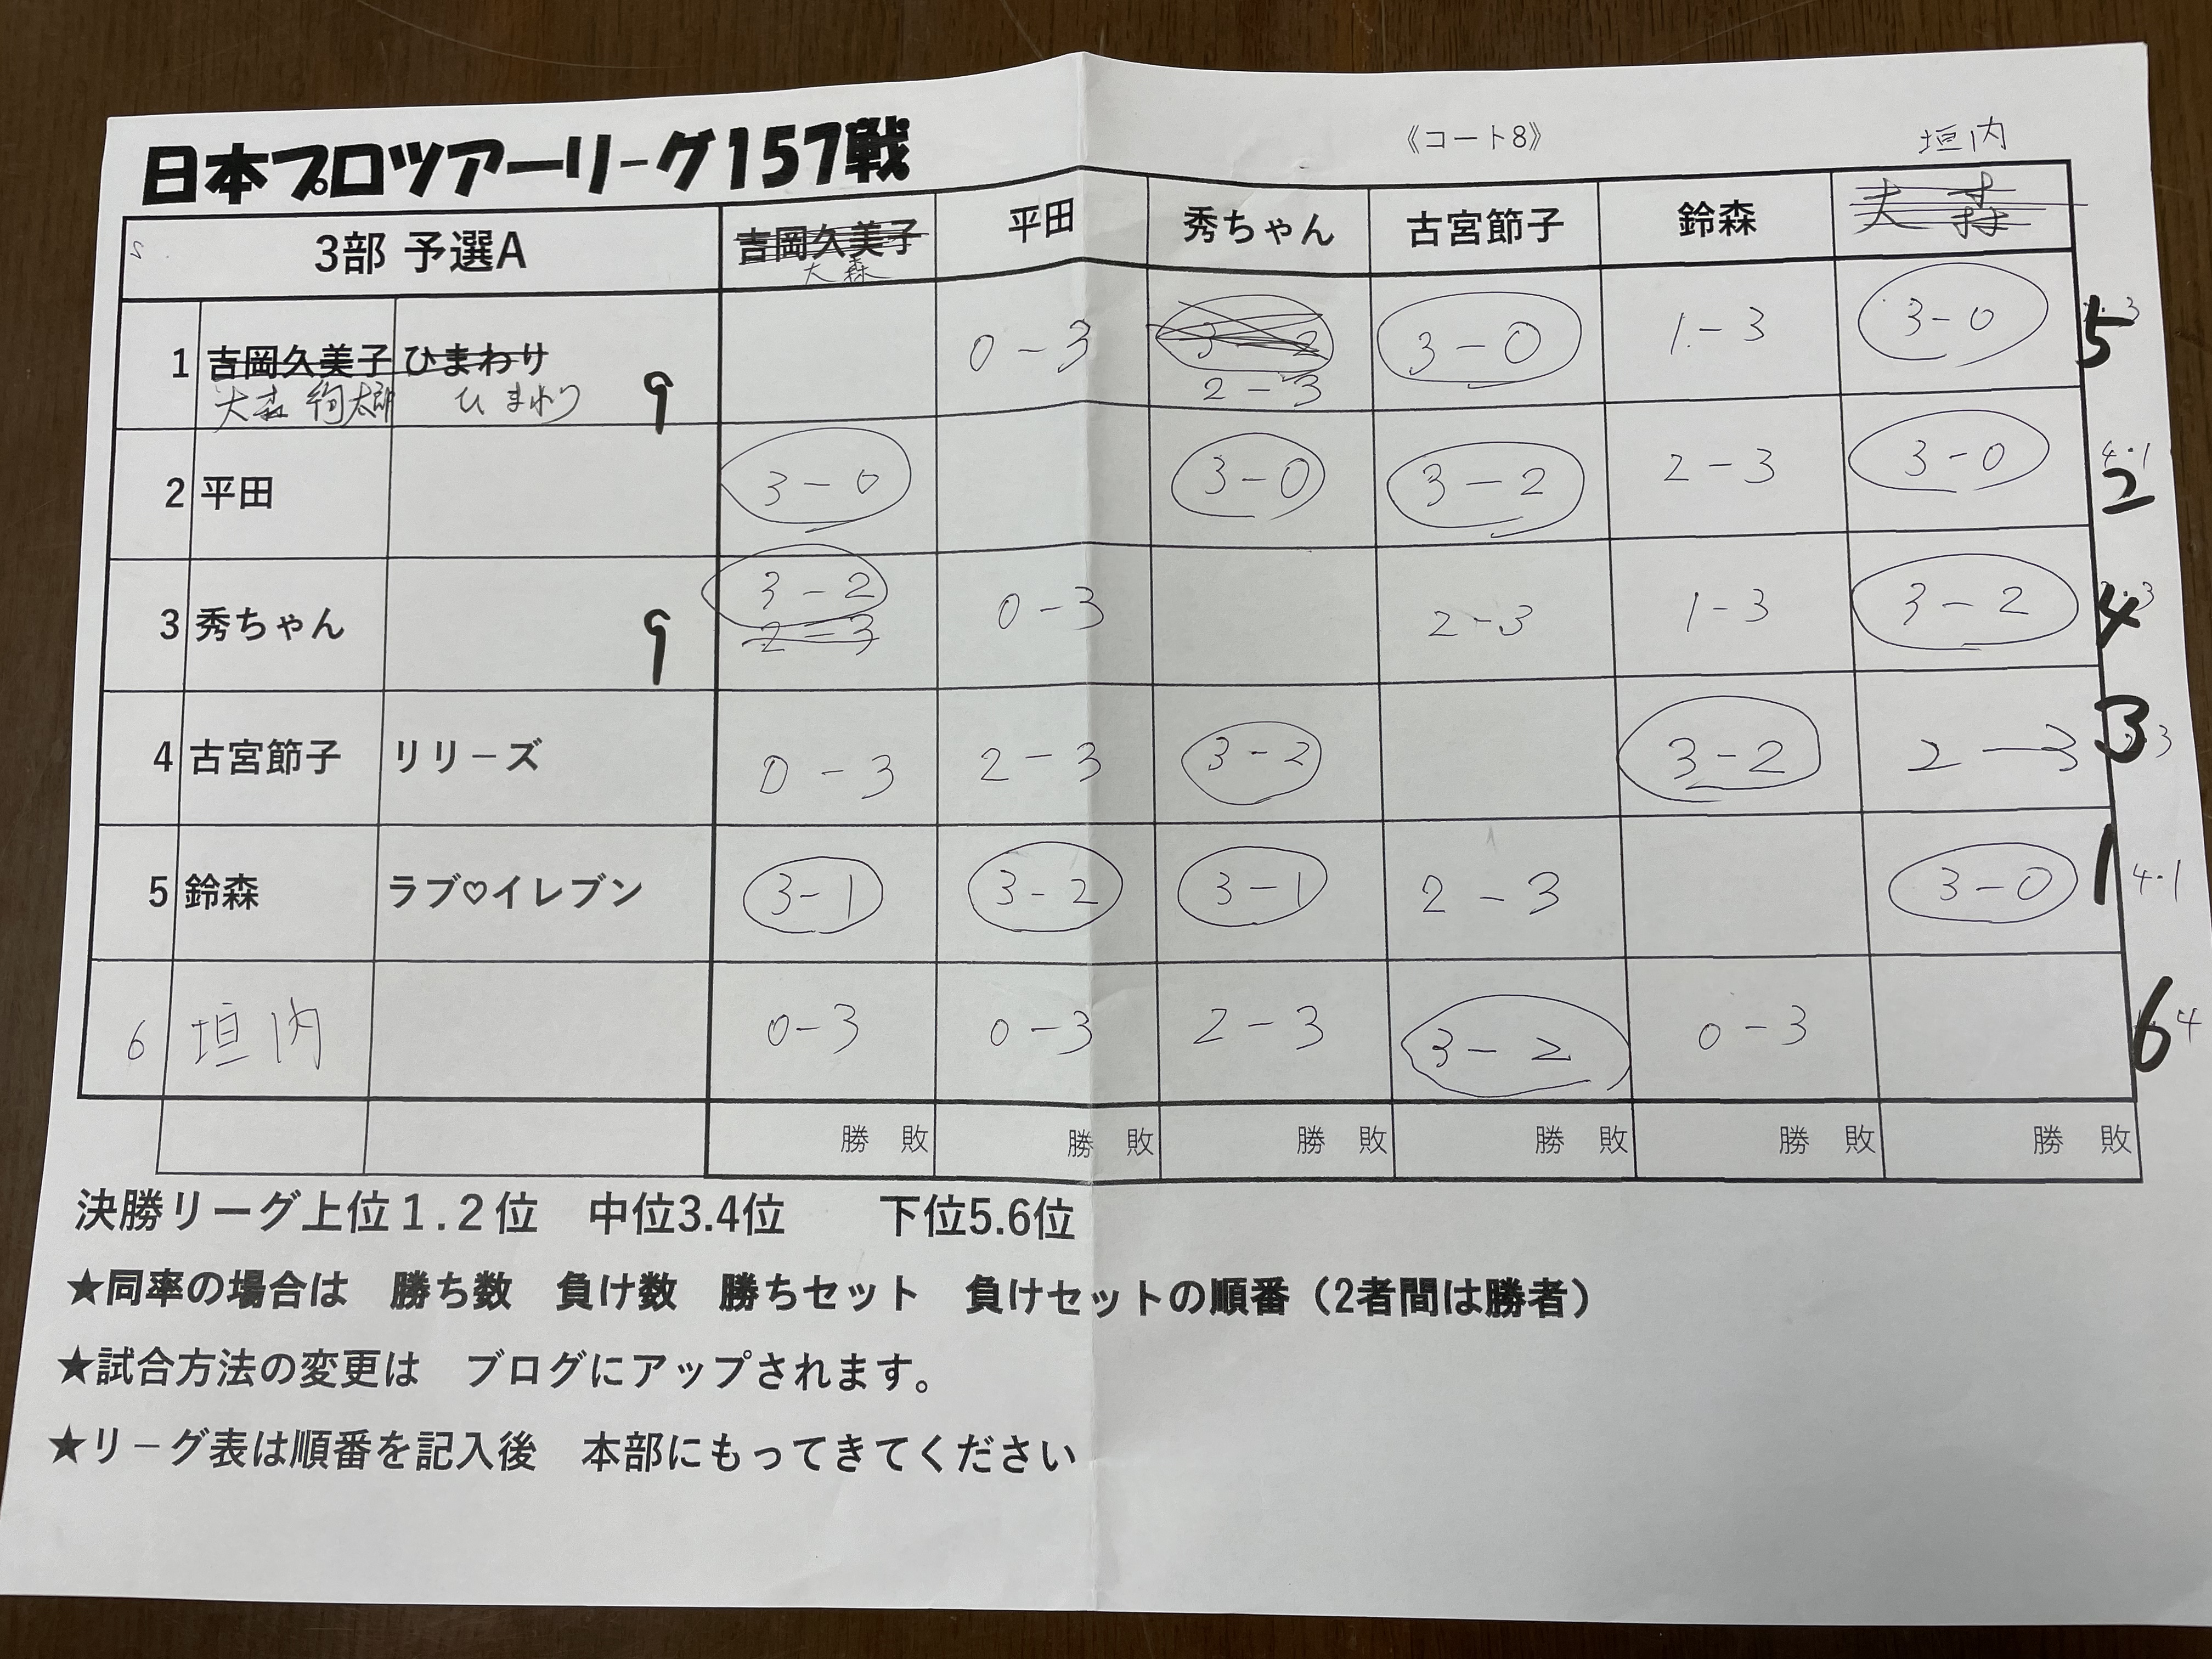 日本プロツアーリーグ157戦
《コート8》
垣内
3部 予選A 吉岡久美子 平田 秀ちゃん 古宮節子 鈴森 大森
大森
1 吉岡久美子 ひまわり 0-3 3-2 3-0 1-3 3-0 5
大森 絢太郎 ひまわり 9 2-3
2 平田 3-0 3-0 3-2 2-3 3-0 4・1 2
3 秀ちゃん 9 3-2 0-3 2-3 1-3 3-2 4
2-3
4 古宮節子 リリーズ 0-3 2-3 3-2 3-2 2-3 3
5 鈴森 ラブ♡イレブン 3-1 3-2 3-1 2-3 3-0 1 4・1
6 垣内 0-3 0-3 2-3 3-2 0-3 6 4
勝 敗 勝 敗 勝 敗 勝 敗 勝 敗 勝 敗
決勝リーグ上位1.2位 中位3.4位 下位5.6位
★同率の場合は 勝ち数 負け数 勝ちセット 負けセットの順番（2者間は勝者）
★試合方法の変更は ブログにアップされます。
★リーグ表は順番を記入後 本部にもってきてください